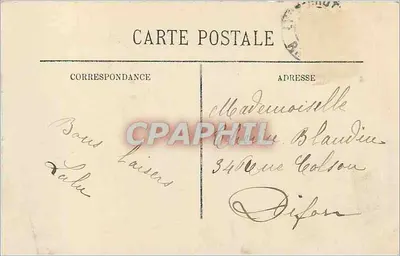 CARTE POSTALE
CORRESPONDANCE
Bons baisers
Lalu
ADRESSE
Mademoiselle
Blandin
34 Rue Colson
Dijon
CPAPHIL